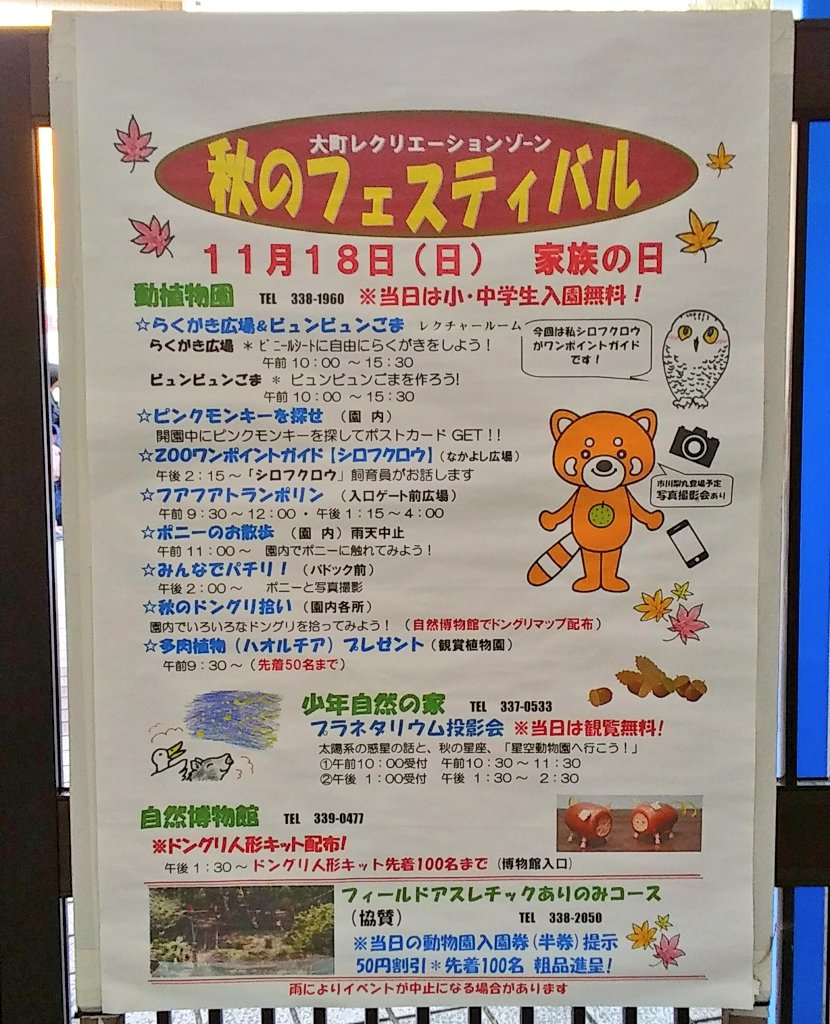 大町レクリエーションゾーン
秋のフェスティバル
11月18日(日) 家族の日
動植物園 TEL 338-1960 ※当日は小・中学生入園無料!
☆らくがき広場&ビュンビュンごま レクチャールーム
らくがき広場 * ビニールシートに自由にらくがきをしよう!
午前10:00 ~ 15:30
ビュンビュンごま * ビュンビュンごまを作ろう!
午前10:00 ~ 15:30
今回は私シロフクロウ
がワンポイントガイド
です!
☆ピンクモンキーを探せ (園 内)
開園中にピンクモンキーを探してポストカード GET!!
☆ZOOワンポイントガイド【シロフクロウ】(なかよし広場)
午後2:15~「シロフクロウ」飼育員がお話します
☆フアフアトランポリン (入口ゲート前広場)
午前9:30~12:00・午後1:15~4:00
市川梨丸登場予定
写真撮影会あり
☆ポニーのお散歩 (園 内) 雨天中止
午前11:00~ 園内でポニーに触れてみよう!
☆みんなでパチリ! (パドック前)
午後2:00~ ポニーと写真撮影
☆秋のドングリ拾い (園内各所)
園内でいろいろなドングリを拾ってみよう! (自然博物館でドングリマップ配布)
☆多肉植物(ハオルチア)プレゼント(観賞植物園)
午前9:30~(先着50名まで)
少年自然の家 TEL 337-0533
プラネタリウム投影会 ※当日は観覧無料!
太陽系の惑星の話と、秋の星座、「星空動物園へ行こう!」
①午前10:00受付 午前10:30~11:30
②午後 1:00受付 午後 1:30~ 2:30
自然博物館 TEL 339-0477
※ドングリ人形キット配布!
午後1:30~ドングリ人形キット先着100名まで(博物館入口)
フィールドアスレチックありのみコース
(協賛) TEL 338-2050
※当日の動物園入園券(半券)提示
50円割引*先着100名 粗品進呈!
雨によりイベントが中止になる場合があります